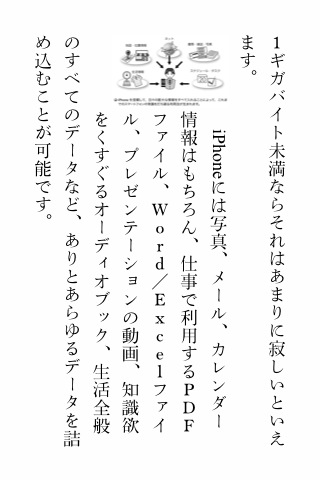 1ギガバイト未満ならそれはあまりに寂しいといえ
ます。
iPhoneには写真、メール、カレンダー
情報はもちろん、仕事で利用するPDF
ファイル、Word／Excelファイ
ル、プレゼンテーションの動画、知識欲
をくすぐるオーディオブック、生活全般
のすべてのデータなど、ありとあらゆるデータを詰
め込むことが可能です。